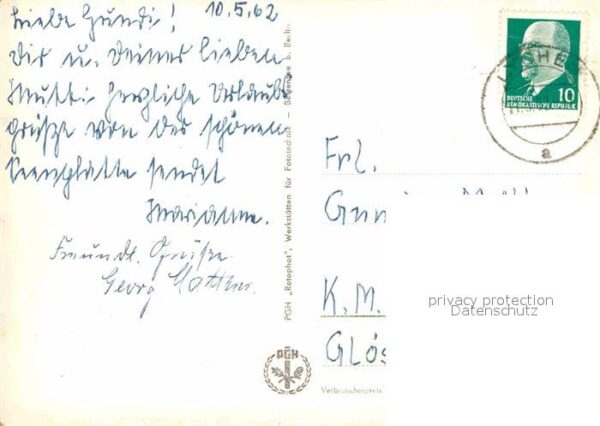 Liebe Gundi! 10.5.62
Dir u. Deiner lieben
Mutti herzliche Urlaubs-
grüße von der schönen
Seenplatte sendet
Marianne.
Freundl. Grüße
Georg
PGH „Rotophot", Werkstätten für Fototechnik — Bestensee b. Berlin
PGH
Verbraucherpreis
DEUTSCHE
DEMOKRATISCHE REPUBLIK
10
a
Frl.
K. M.
privacy protection
Datenschutz